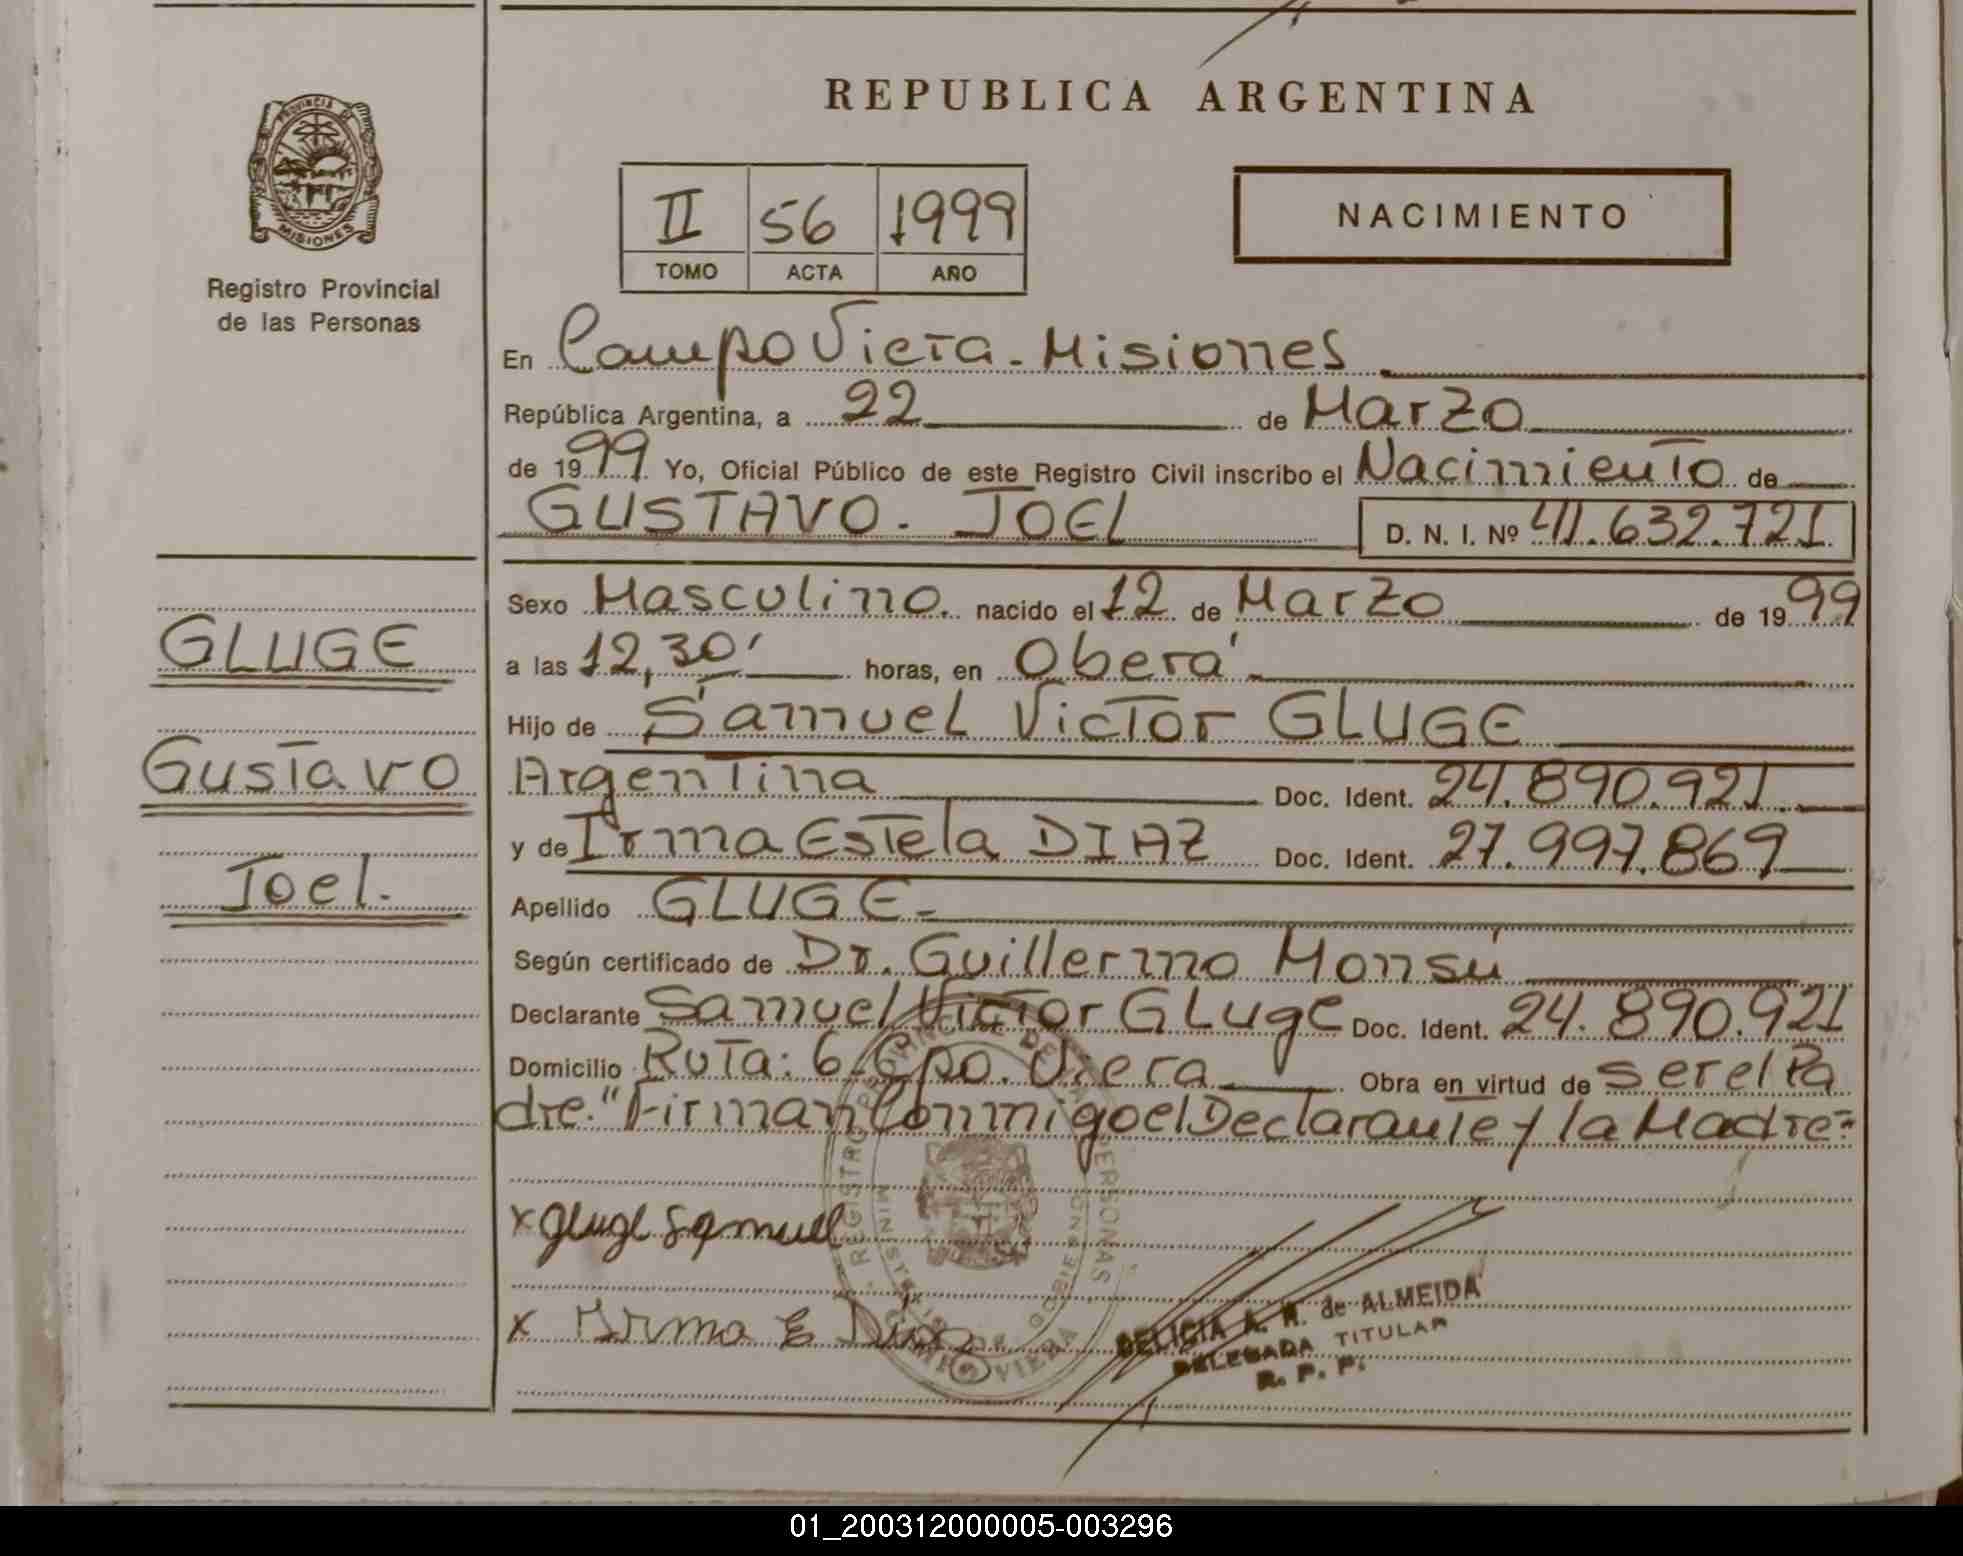 REPUBLICA ARGENTINA
PROVINCIA DE
MISIONES
Registro Provincial
de las Personas
II 56 1999
TOMO ACTA AÑO
NACIMIENTO
En Campo Viera - Misiones
República Argentina, a 22 de Marzo
de 1999 Yo, Oficial Público de este Registro Civil inscribo el Nacimiento de
GUSTAVO. JOEL D. N. I. Nº 41.632.721
GLUGE
Gustavo
Joel.
Sexo Masculino. nacido el 12 de Marzo de 1999
a las 12,30' horas, en Oberá
Hijo de Samuel Victor GLUGE
Argentina Doc. Ident. 24.890.921.
y de Irma Estela DIAZ Doc. Ident. 27.997.869
Apellido GLUGE-
Según certificado de Dr. Guillermo Monsú
Declarante Samuel Victor Gluge Doc. Ident. 24.890.921
Domicilio Ruta: 6-Cpo. Viera Obra en virtud de ser el Pa
dre." Firman Conmigo el Declarante y la Madre=
x Gluge Samuel
x Irma E Diaz
REGISTRO PROVINCIAL DE LAS PERSONAS
MINISTERIO DE GOBIERNO
CAMPO VIERA
DELICIA A. R. de ALMEIDA
DELEGADA TITULAR
R. P. P.
01_200312000005-003296